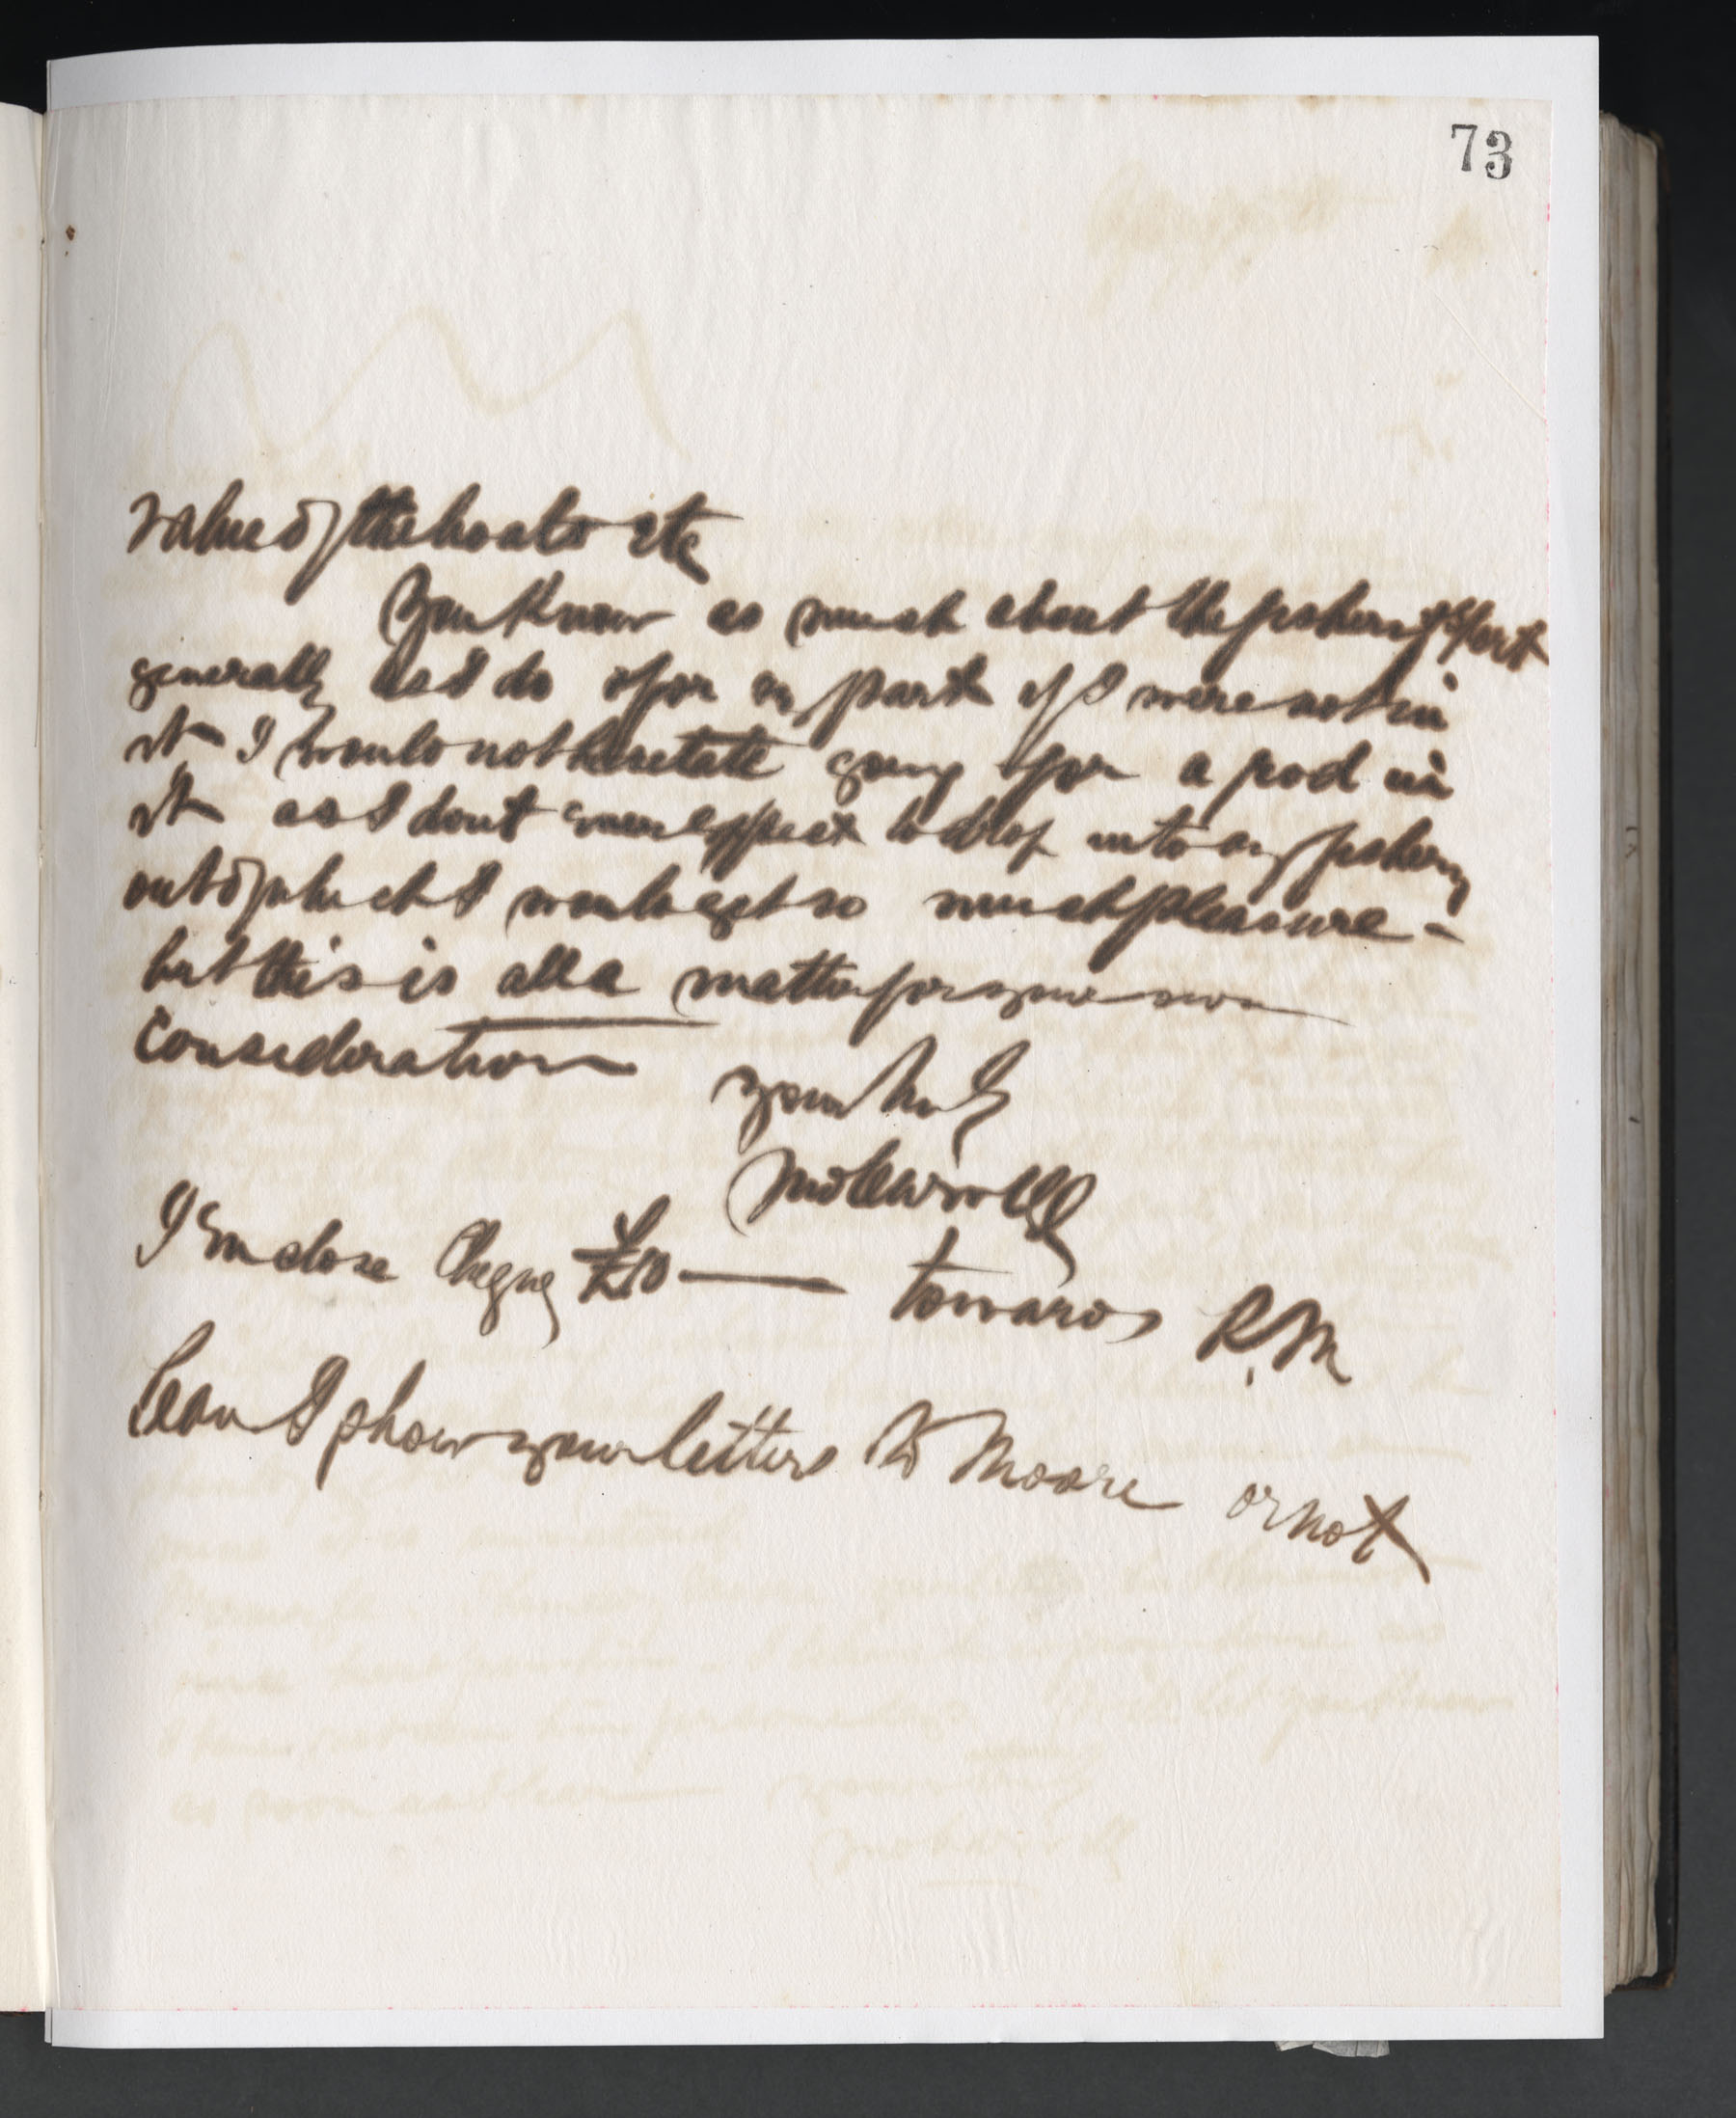 73
value of the boats etc
You know as much about the fishery & sport
generally as I do & for my part if I were not in
it I would not hesitate going for a rod in
it as I dont ever expect to drop into any fishery
out of which I would get so much pleasure -
but this is all a matter for your own
consideration
yours truly
I Enclose Cheque £10 — towards R.M
Can I show your letters to Moore or not